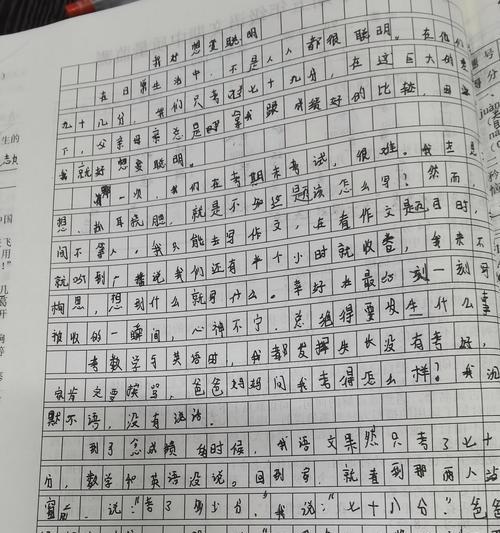 我好想变聪明
在日常生活中，不是人人都很聪明。在他们
九十几分，我们只考过七十九分，在这巨大的差
下，父亲母亲总是好拿我跟成绩好的比较，因
我就好想要聪明。
有一次，我们在考期末考试，很难。我在想
想，抓耳挠腮，就是不知这题该怎么写？然而，
间不等人，我只能去写作文，在看作文是五目时，
就听到广播说我们还有半个小时就收卷，我来不
构思，想到什么就写什么。幸好在最后一刻一刻写
被收的一瞬间，心神不宁，总觉得要发生什么事
考数学与英语时，我都发挥失长没有考好，
家肯定要挨骂，爸爸妈妈问我考得怎么样？我沉
默不语，没有说话。
到了念成绩的时候，我语文果然只考了七十
分，数学和英语没说。回到家，就看到那两人站
窗前，说：“考了多少分。”我说：“七十八分”爸爸